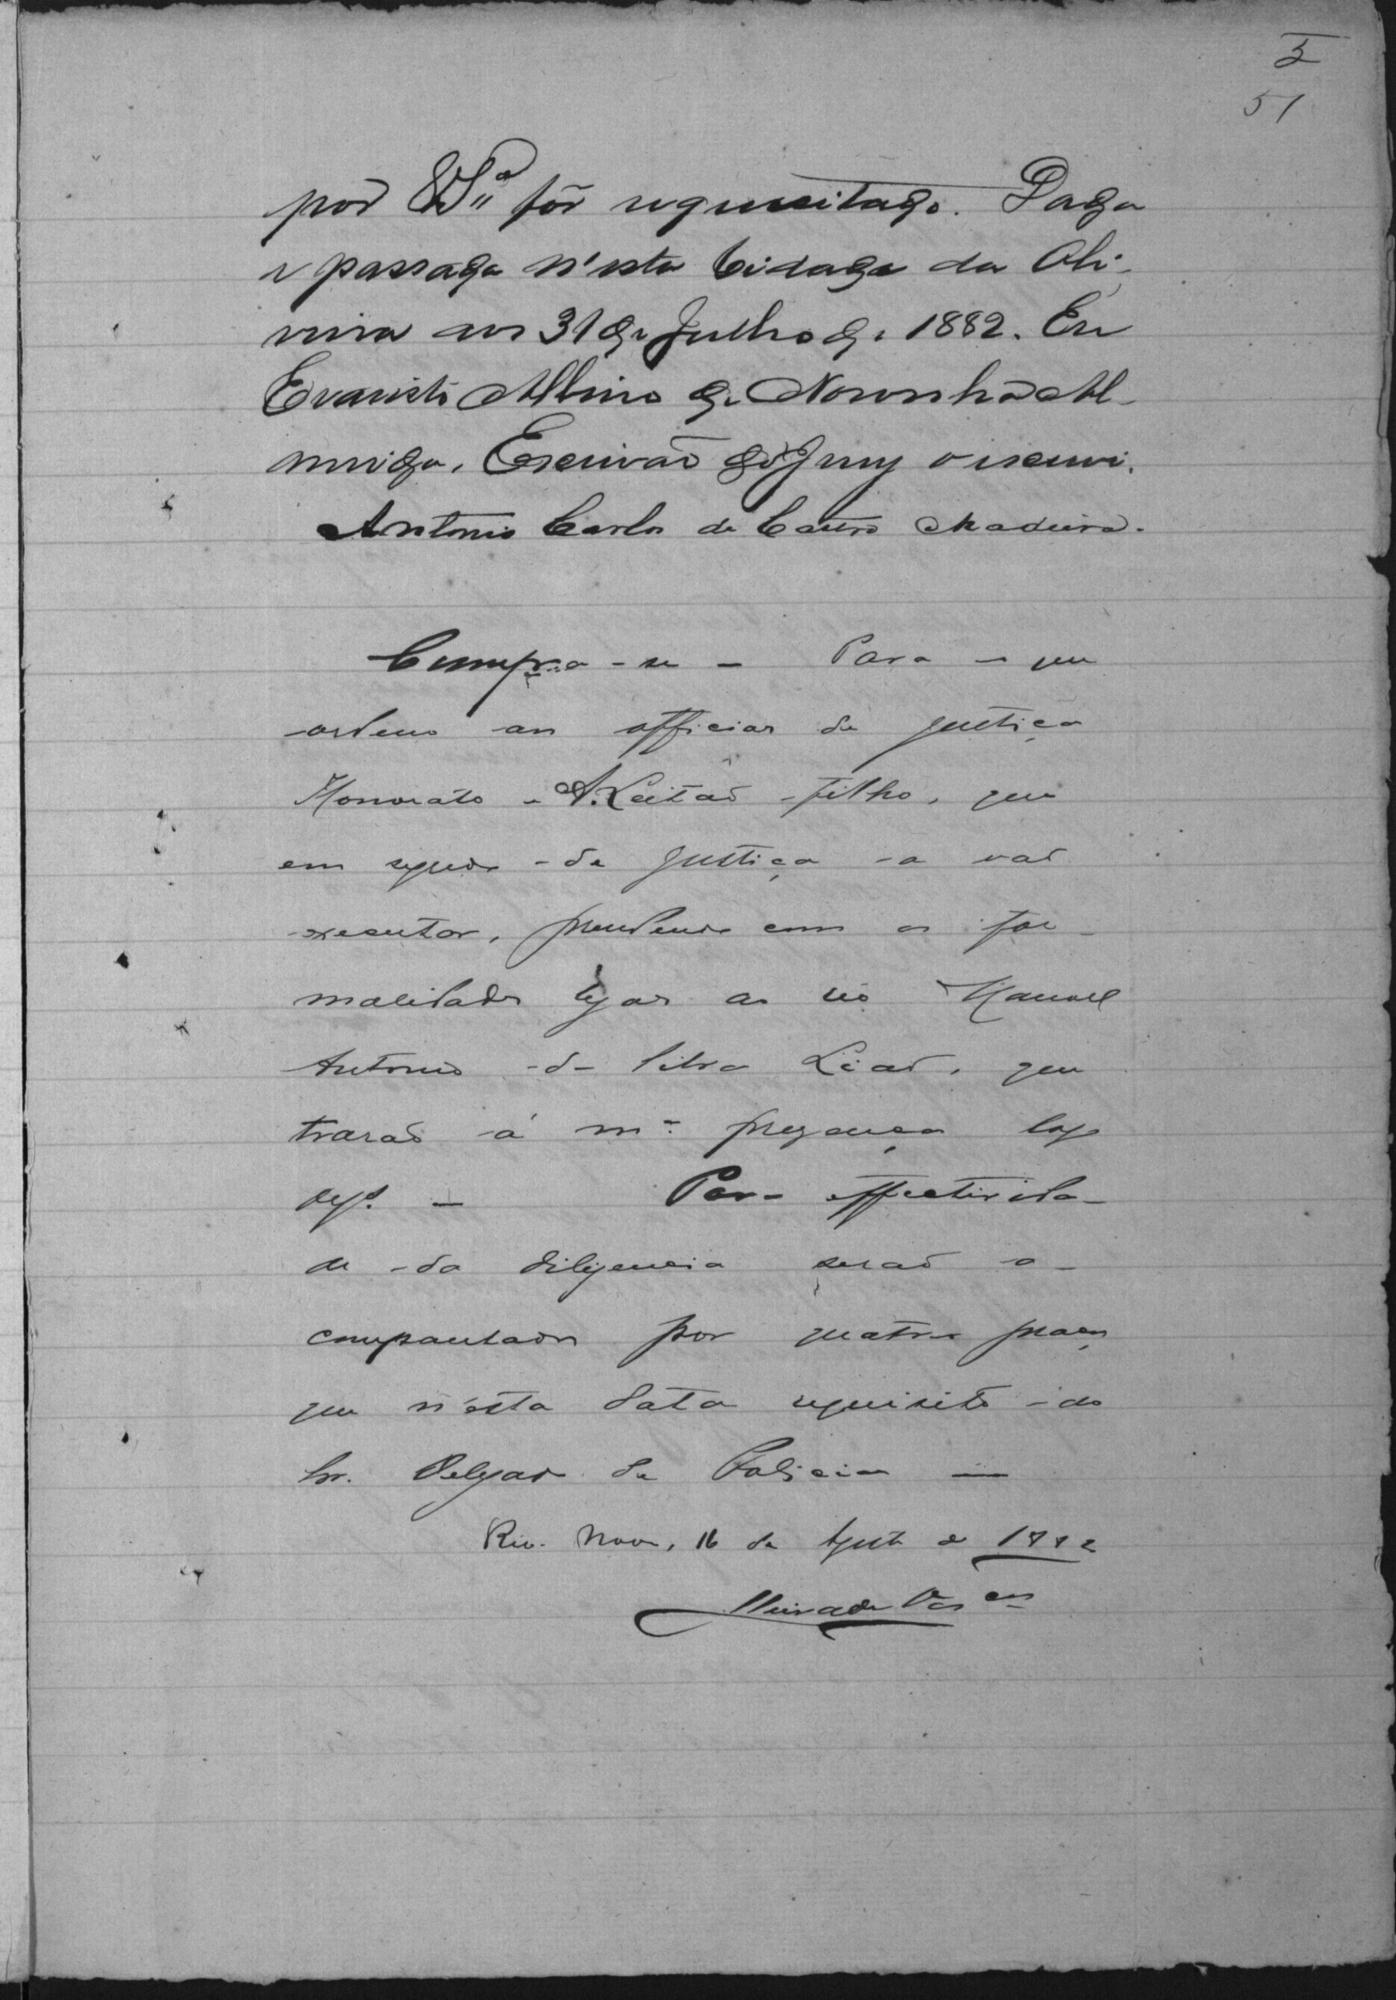 5
51
por V. S.ª fôr requisitado. Dada
e passada n'esta Cidade da Oli-
veira aos 31 de Julho de 1882. Eu
Evaristo Albino de Noronha Al-
meida, Escrivão do Jury o escrevi.
Antonio Carlos de Castro Madeira.
Cumpra-se - Para o que
ordeno aos officiaes de justiça
Honorato e A. Leitão filho, que
em segredo de justiça a vao
executar, prendendo com as for-
malidades legaes ao réo Manoel
Antonio da Silva Leão, que
trarão á m.ª presença logo
dep.s - Para effectivida-
de da diligencia serão a-
companhados por quatro praças
que n'esta data requisito do
Sr. Delegado de Policia -
Rio Novo, 16 de Agosto de 1882